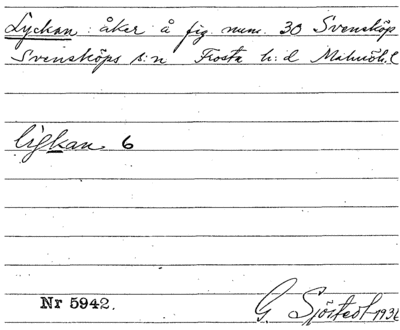 Lyckan: åker å fig. num. 30 Svensköp
Svensköps s:n Frosta h:d Malmöh.l
ligkan 6
Nr 5942.
G. Sjöstedt 1936